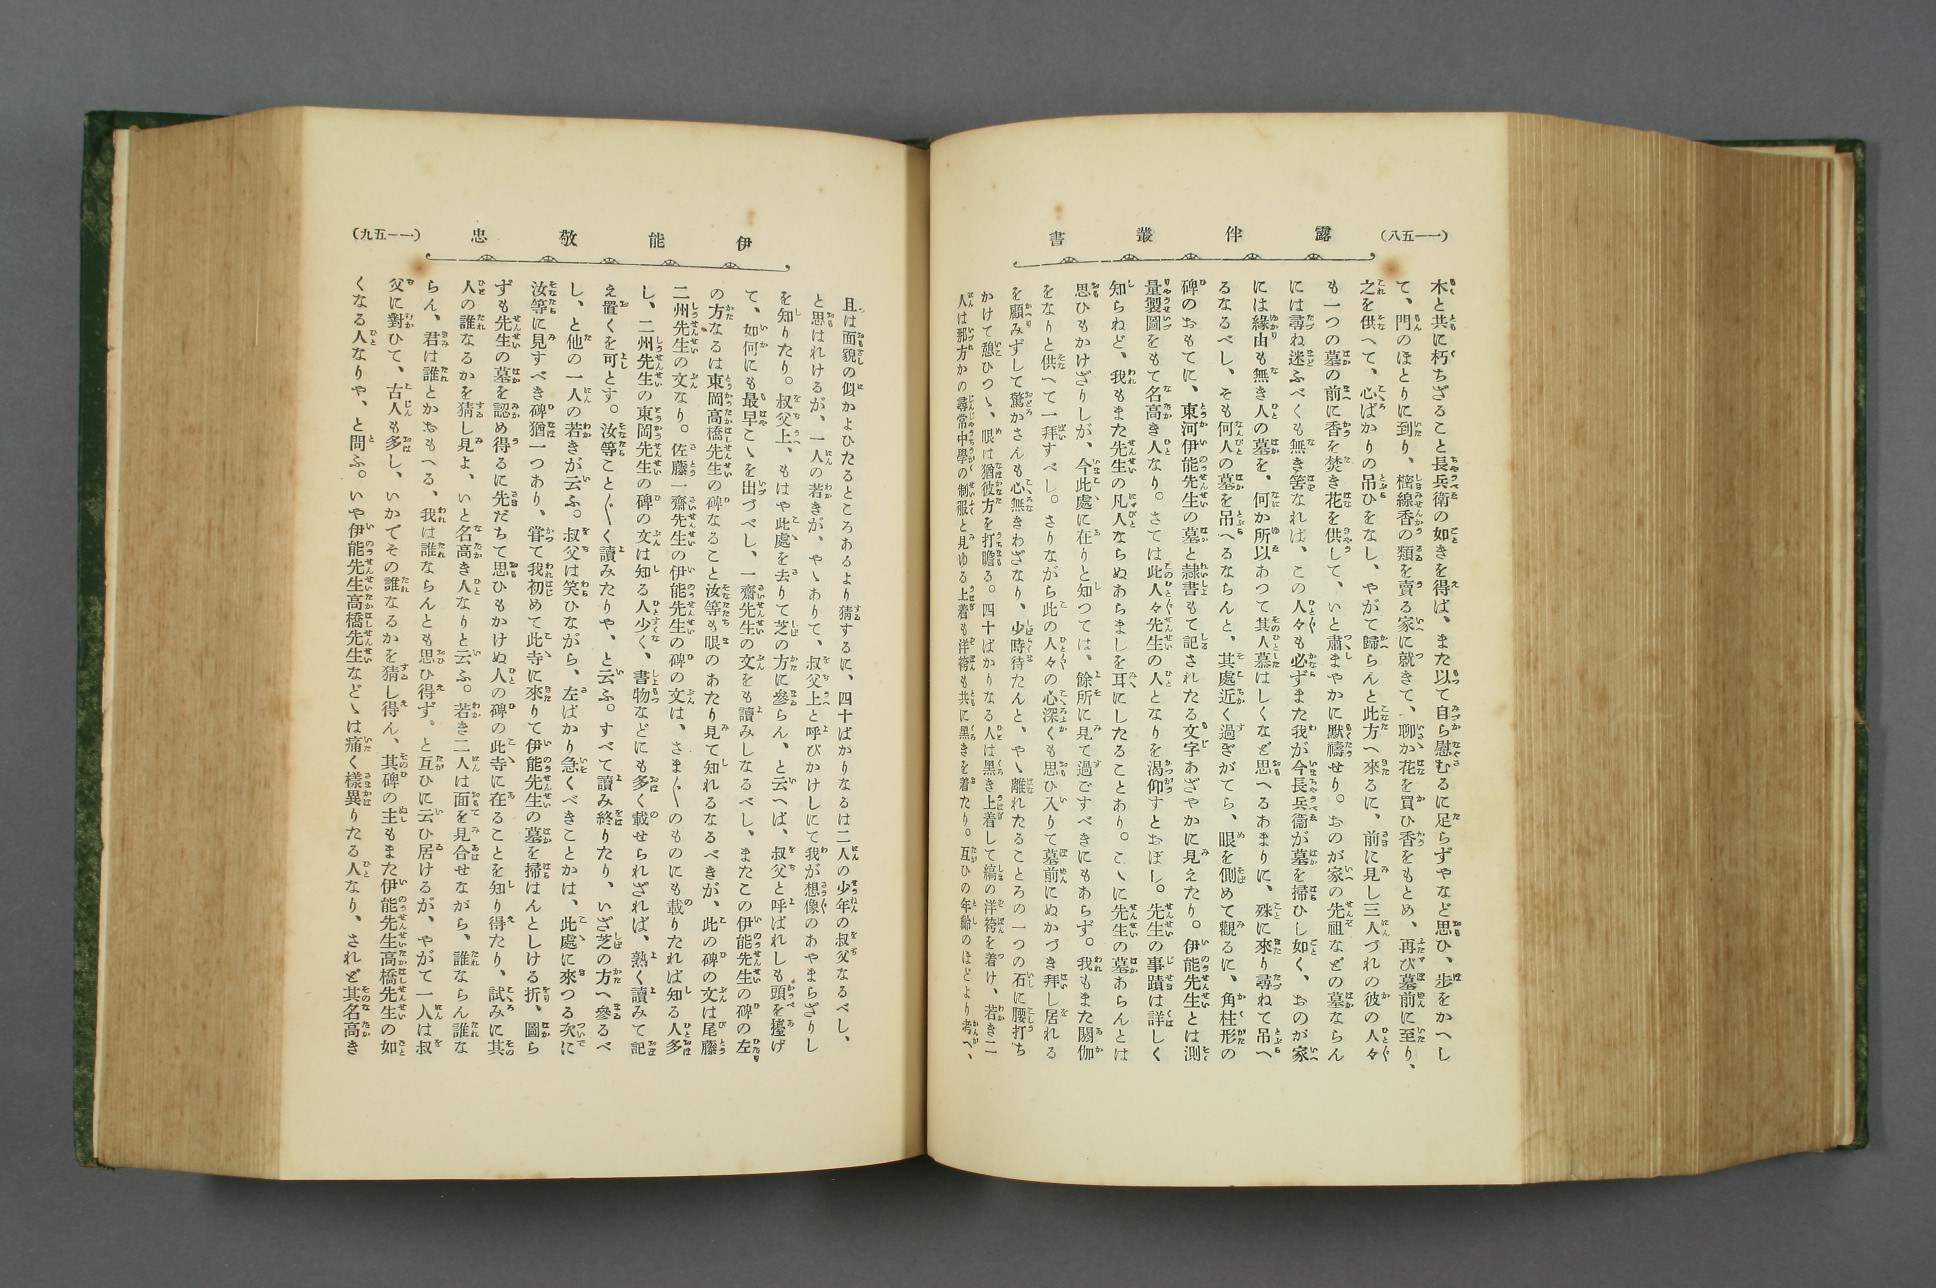 (一一五八)
露伴叢書
木と共に朽ちざること長兵衛の如きを得ば、また以て自ら慰むるに足らずやなど思ひ、歩をかへし
て、門のほとりに到り、樒線香の類を賣る家に就きて、聊か花を買ひ香をもとめ、再び墓前に至り、
之を供へて、心ばかりの吊ひをなし、やがて歸らんと此方へ來るに、前に見し三人づれの彼の人々
も一つの墓の前に香を焚き花を供して、いと肅まやかに默禱せり。おのが家の先祖などの墓ならん
には尋ね迷ふべくも無き筈なれば、この人々も必ずまた我が今長兵衞が墓を掃ひし如く、おのが家
には緣由も無き人の墓を、何か所以あつて其人慕はしくなど思へるあまりに、殊に來り尋ねて吊へ
るなるべし、そも何人の墓を吊へるならんと、其處近く過ぎがてら、眼を側めて觀るに、角柱形の
碑のおもてに、東河伊能先生の墓と隷書もて記されたる文字あざやかに見えたり。伊能先生とは測
量製圖をもて名高き人なり。さては此人々先生の人となりを渇仰すとおぼし。先生の事蹟は詳しく
知らねど、我もまた先生の凡人ならぬあらましを耳にしたることあり。こゝに先生の墓あらんとは
思ひもかけざりしが、今此處に在りと知つては、餘所に見て過ごすべきにもあらず。我もまた閼伽
をなりと供へて一拜すべし。さりながら此の人々の心深くも思ひ入りて墓前にぬかづき拜し居れる
を顧みずして驚かさんも心無きわざなり、少時待たんと、やゝ離れたるところの一つの石に腰打ち
かけて憩ひつゝ、眼は猶彼方を打瞻る。四十ばかりなる人は黒き上着して縞の洋袴を着け、若き二
人は那方かの尋常中學の制服と見ゆる上着も洋袴も共に黒きを着たり。互ひの年齡のほどより考へ、
伊能敬忠
(一一五九)
且は面貌の似かよひたるところあるより猜するに、四十ばかりなるは二人の少年の叔父なるべし、
と思はれけるが、一人の若きが、やゝありて、叔父上と呼びかけしにて我が想像のあやまらざりし
を知りたり。叔父上、もはや此處を去りて芝の方に參らん、と云へば、叔父と呼ばれしも頭を擡げ
て、如何にも最早こゝを出づべし、一齋先生の文をも讀みしなるべし、またこの伊能先生の碑の左
の方なるは東岡高橋先生の碑なること汝等も眼のあたり見て知れるなるべきが、此の碑の文は尾藤
二州先生の文なり。佐藤一齋先生の伊能先生の碑の文は、さま〲のものにも載りたれば知る人多
し、二州先生の東岡先生の碑の文は知る人少く、書物などにも多く載せられざれば、熟く讀みて記
え置くを可とす。汝等こと〲く讀みたりや、と云ふ。すべて讀み終りたり、いざ芝の方へ參るべ
し、と他の一人の若きが云ふ。叔父は笑ひながら、左ばかり急ぐべきことかは、此處に來つる次に
汝等に見すべき碑猶一つあり、甞て我初めて此寺に來りて伊能先生の墓を掃はんとしける折、圖ら
ずも先生の墓を認め得るに先だちて思ひもかけぬ人の碑の此寺に在ることを知り得たり、試みに其
人の誰なるかを猜し見よ、いと名高き人なりと云ふ。若き二人は面を見合せながら、誰ならん誰な
らん、君は誰とかおもへる、我は誰ならんとも思ひ得ず。と互ひに云ひ居けるが、やがて一人は叔
父に對ひて、古人も多し、いかでその誰なるかを猜し得ん、其碑の主もまた伊能先生高橋先生の如
くなる人なりや、と問ふ。いや伊能先生高橋先生などゝは痛く樣異りたる人なり、されど其名高き